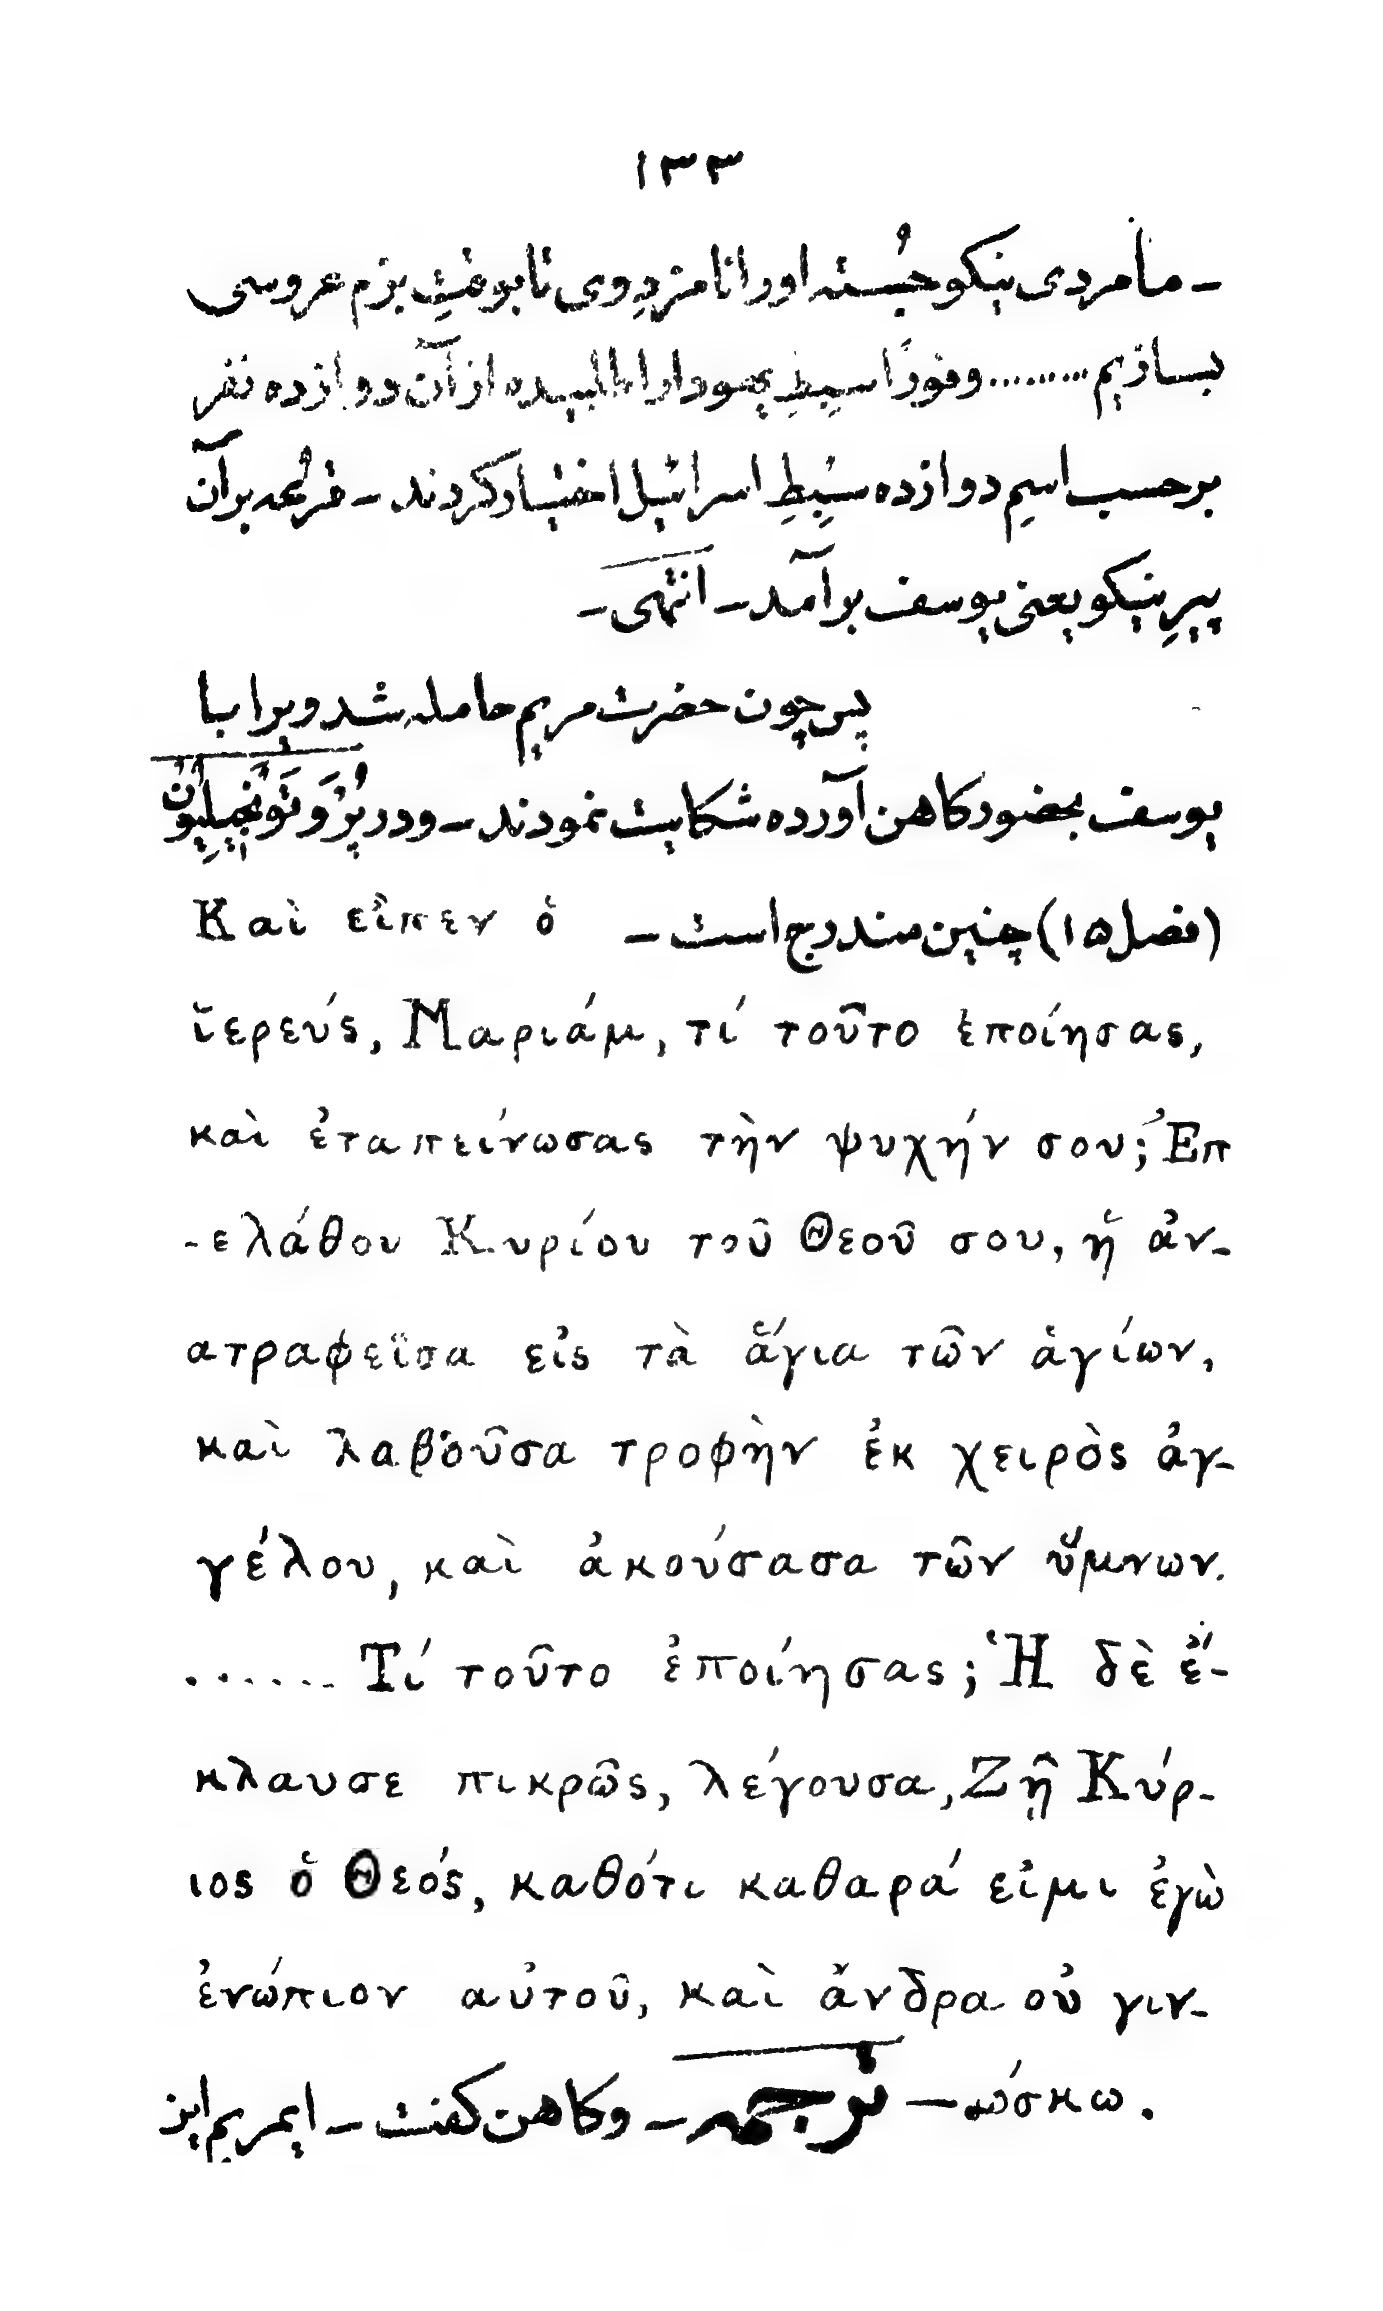 ۱۳۳
ـ ما مردی نیکو جُسته او را نامزدِ وی تا بوقتِ بزم عروسی
بسازیم ......... و فورًا سِبطِ یهودا را طلبیده از آن دوازده نفر
بر حسب اسمِ دوازده سِبطِ اسرائیل اختیار کردند ـ قُرعه بر آن
پیرِ نیکو یعنی یوسف بر آمد ـ انتهی ـ
پس چون حضرت مریم حامله شد ویرا با
یوسف بحضور کاهن آورده شکایت نمودند ـ و در پُرُوتَوَنجِیلِیُونْ
(فصل ۱۵) چنین مندرج است ـ Καὶ εἶπεν ὁ
ἱερεύς, Μαριάμ, τί τοῦτο ἐποίησας,
καὶ ἐταπείνωσας τὴν ψυχήν σου; Ἐπ
-ελάθου Κυρίου τοῦ Θεοῦ σου, ἡ ἀν-
ατραφεῖσα εἰς τὰ ἅγια τῶν ἁγίων,
καὶ λαβοῦσα τροφὴν ἐκ χειρὸς ἀγ-
γέλου, καὶ ἀκούσασα τῶν ὕμνων.
...... Τί τοῦτο ἐποίησας; Ἡ δὲ ἔ-
κλαυσε πικρῶς, λέγουσα, Ζῇ Κύρ-
ιος ὁ Θεός, καθότι καθαρά εἰμι ἐγὼ
ἐνώπιον αὐτοῦ, καὶ ἄνδρα οὐ γιν-
ώσκω. — ترجمه ـ و کاهن گفت ـ ایمریم این